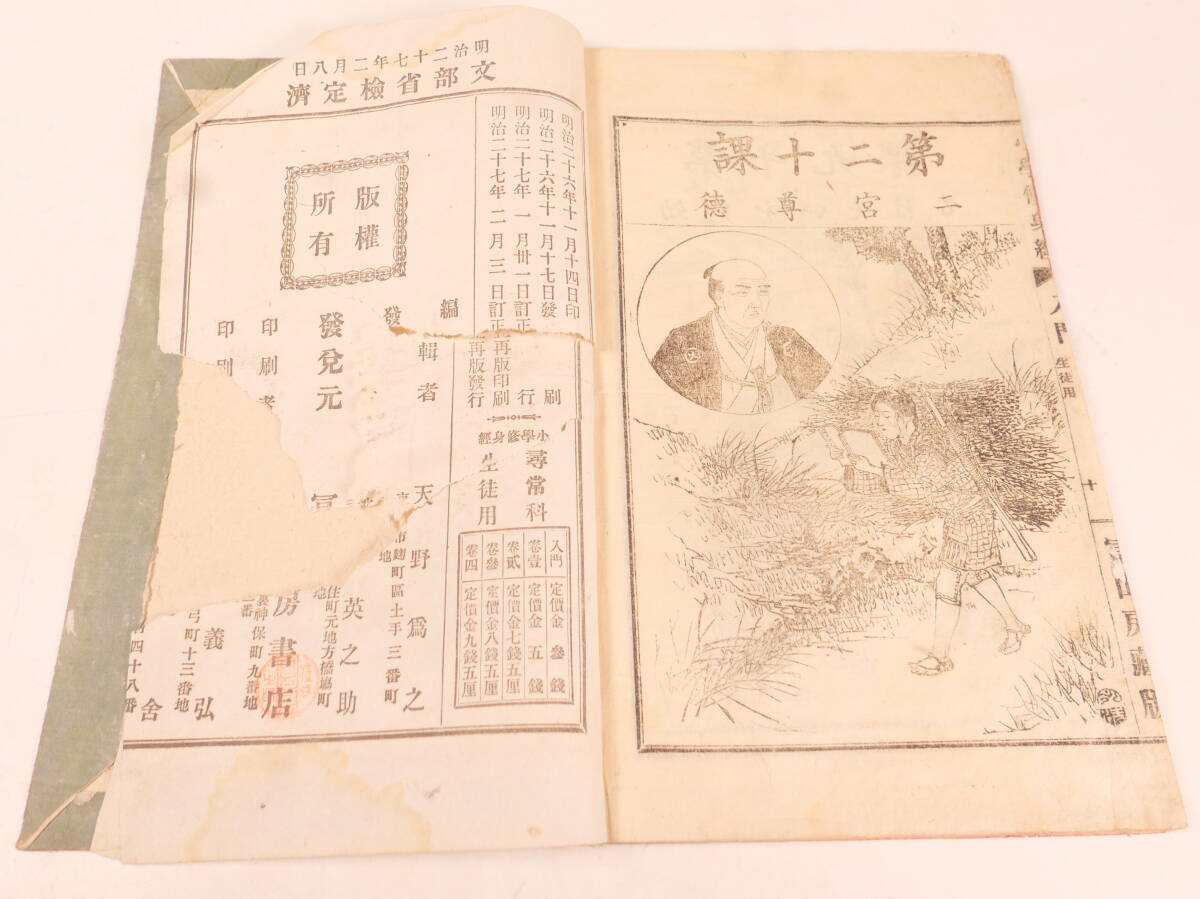 第二十課
二宮尊德
入門
生徒用
十
房藏版
明治二十七年二月八日
文部省檢定濟
明治二十六年十一月十四日印刷
明治二十六年十一月十七日發行
明治二十七年一月卅一日訂正再版印刷
明治二十七年二月三日訂正再版發行
小學修身經
尋常科
生徒用
入門 定價金參錢
卷壹 定價金五錢
卷貳 定價金七錢五厘
卷參 定價金八錢五厘
卷四 定價金九錢五厘
版權
所有
編輯者 天野爲之
市麴町區土手三番町
地
發
英之助
住町元地方橋場町
地
發兌元
房書店
神保町九番地
印刷者
義弘
弓町十三番地
印刷
舍
四十八番